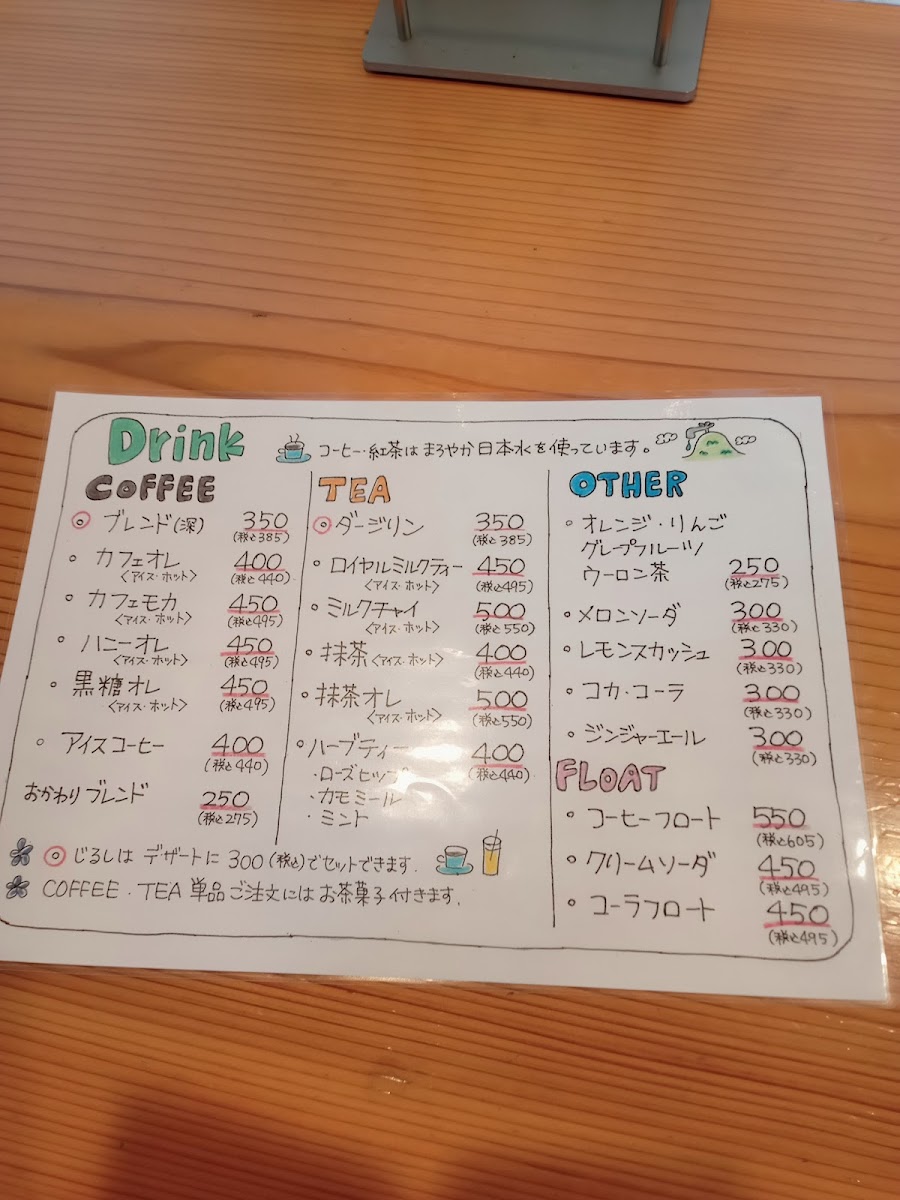 Drink
コーヒー・紅茶は まろやか 日本水を使っています。
COFFEE
◎ ブレンド(深) 350
(税込385)
・ カフェオレ 400
<アイス・ホット> (税込440)
・ カフェモカ 450
<アイス・ホット> (税込495)
・ ハニーオレ 450
<アイス・ホット> (税込495)
・ 黒糖オレ 450
<アイス・ホット> (税込495)
・ アイスコーヒー 400
(税込440)
おかわりブレンド 250
(税込275)
TEA
◎ ダージリン 350
(税込385)
・ ロイヤルミルクティー 450
<アイス・ホット> (税込495)
・ ミルクチャイ 500
<アイス・ホット> (税込550)
・ 抹茶 <アイス・ホット> 400
(税込440)
・ 抹茶オレ 500
<アイス・ホット> (税込550)
・ ハーブティー 400
・ローズヒップ (税込440)
・カモミール
・ミント
OTHER
・ オレンジ・りんご
グレープフルーツ
ウーロン茶 250
(税込275)
・ メロンソーダ 300
(税込330)
・ レモンスカッシュ 300
(税込330)
・ コカ・コーラ 300
(税込330)
・ ジンジャーエール 300
(税込330)
FLOAT
・ コーヒーフロート 550
(税込605)
・ クリームソーダ 450
(税込495)
・ コーラフロート 450
(税込495)
◎ じるしは デザートに 300(税込)でセットできます.
COFFEE・TEA 単品ご注文には お茶菓子付きます.